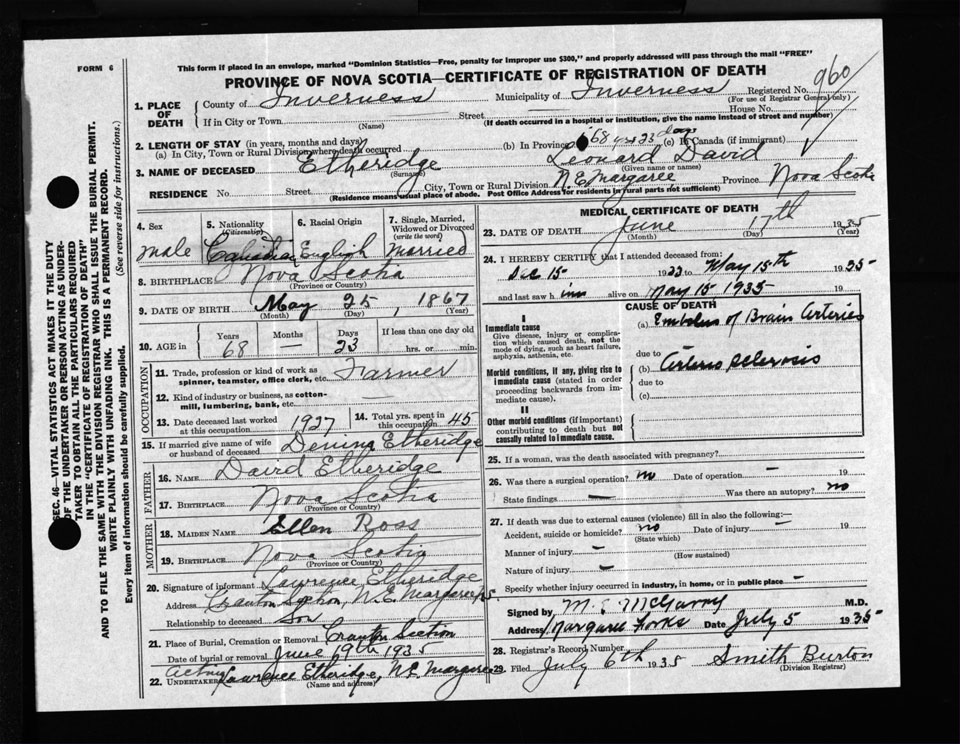 FORM 6
This form if placed in an envelope, marked "Dominion Statistics—Free, penalty for improper use $300," and properly addressed will pass through the mail "FREE"
PROVINCE OF NOVA SCOTIA—CERTIFICATE OF REGISTRATION OF DEATH
Registered No. 960
(For use of Registrar General only)
1. PLACE OF DEATH
County of Inverness Municipality of Inverness
If in City or Town Street House No.
(Name) (If death occurred in a hospital or institution, give the name instead of street and number)
2. LENGTH OF STAY (in years, months and days)
(a) In City, Town or Rural Division where death occurred (b) In Province 68 yrs 23 days (c) In Canada (if immigrant)
3. NAME OF DECEASED Etheridge Leonard David
(Surname) (Given name or names)
RESIDENCE No. Street City, Town or Rural Division N.E. Margaree Province Nova Scotia
(Residence means usual place of abode. Post Office Address for residents in rural parts not sufficient)
4. Sex
male
5. Nationality
(Citizenship)
Canadian
6. Racial Origin
English
7. Single, Married, Widowed or Divorced
(write the word)
Married
8. BIRTHPLACE Nova Scotia
(Province or Country)
9. DATE OF BIRTH May 25, 1867
(Month) (Day) (Year)
10. AGE in
Years Months Days If less than one day old
68 23 hrs. or min.
OCCUPATION
11. Trade, profession or kind of work as spinner, teamster, office clerk, etc. Farmer
12. Kind of industry or business, as cotton-mill, lumbering, bank, etc.
13. Date deceased last worked at this occupation 1927
14. Total yrs. spent in this occupation 45
15. If married give name of wife or husband of deceased Etheridge
FATHER
16. NAME David Etheridge
17. BIRTHPLACE Nova Scotia
(Province or Country)
MOTHER
18. MAIDEN NAME Ellen Ross
19. BIRTHPLACE Nova Scotia
(Province or Country)
20. Signature of informant Lawrence Etheridge
Address Section, N.E. Margaree
Relationship to deceased Son
21. Place of Burial, Cremation or Removal Section
Date of burial or removal June 19th 1935
22. UNDERTAKER Acting Lawrence Etheridge, N.E. Margaree
(Name and address)
MEDICAL CERTIFICATE OF DEATH
23. DATE OF DEATH June 17th 1935
(Month) (Day) (Year)
24. I HEREBY CERTIFY that I attended deceased from:
Dec 15 19 to May 15th 1935
and last saw him alive on May 15 1935
CAUSE OF DEATH
I
Immediate cause
Give disease, injury or complication which caused death, not the mode of dying, such as heart failure, asphyxia, asthenia, etc.
(a) Embolus of Brain Arteries
due to
Morbid conditions, if any, giving rise to immediate cause (stated in order proceeding backwards from immediate cause).
(b) Arterio sclerosis
due to
(c)
II
Other morbid conditions (if important) contributing to death but not causally related to immediate cause.
25. If a woman, was the death associated with pregnancy?
26. Was there a surgical operation? no Date of operation — 19
State findings — Was there an autopsy? no
27. If death was due to external causes (violence) fill in also the following:—
Accident, suicide or homicide? no Date of injury — 19
(State which)
Manner of injury —
(How sustained)
Nature of injury —
Specify whether injury occurred in industry, in home, or in public place —
Signed by M.D.
Address Margaree Forks Date July 5 1935
28. Registrar's Record Number
29. Filed July 6th 1935 Smith Burton
(Division Registrar)
SEC. 46—VITAL STATISTICS ACT MAKES IT THE DUTY
OF THE UNDERTAKER OR PERSON ACTING AS UNDERTAKER TO OBTAIN ALL THE PARTICULARS REQUIRED
IN THE "CERTIFICATE OF REGISTRATION OF DEATH"
AND TO FILE THE SAME WITH THE DIVISION REGISTRAR WHO SHALL ISSUE THE BURIAL PERMIT.
WRITE PLAINLY WITH UNFADING INK. THIS IS A PERMANENT RECORD.
Every item of information should be carefully supplied. (See reverse side for instructions.)